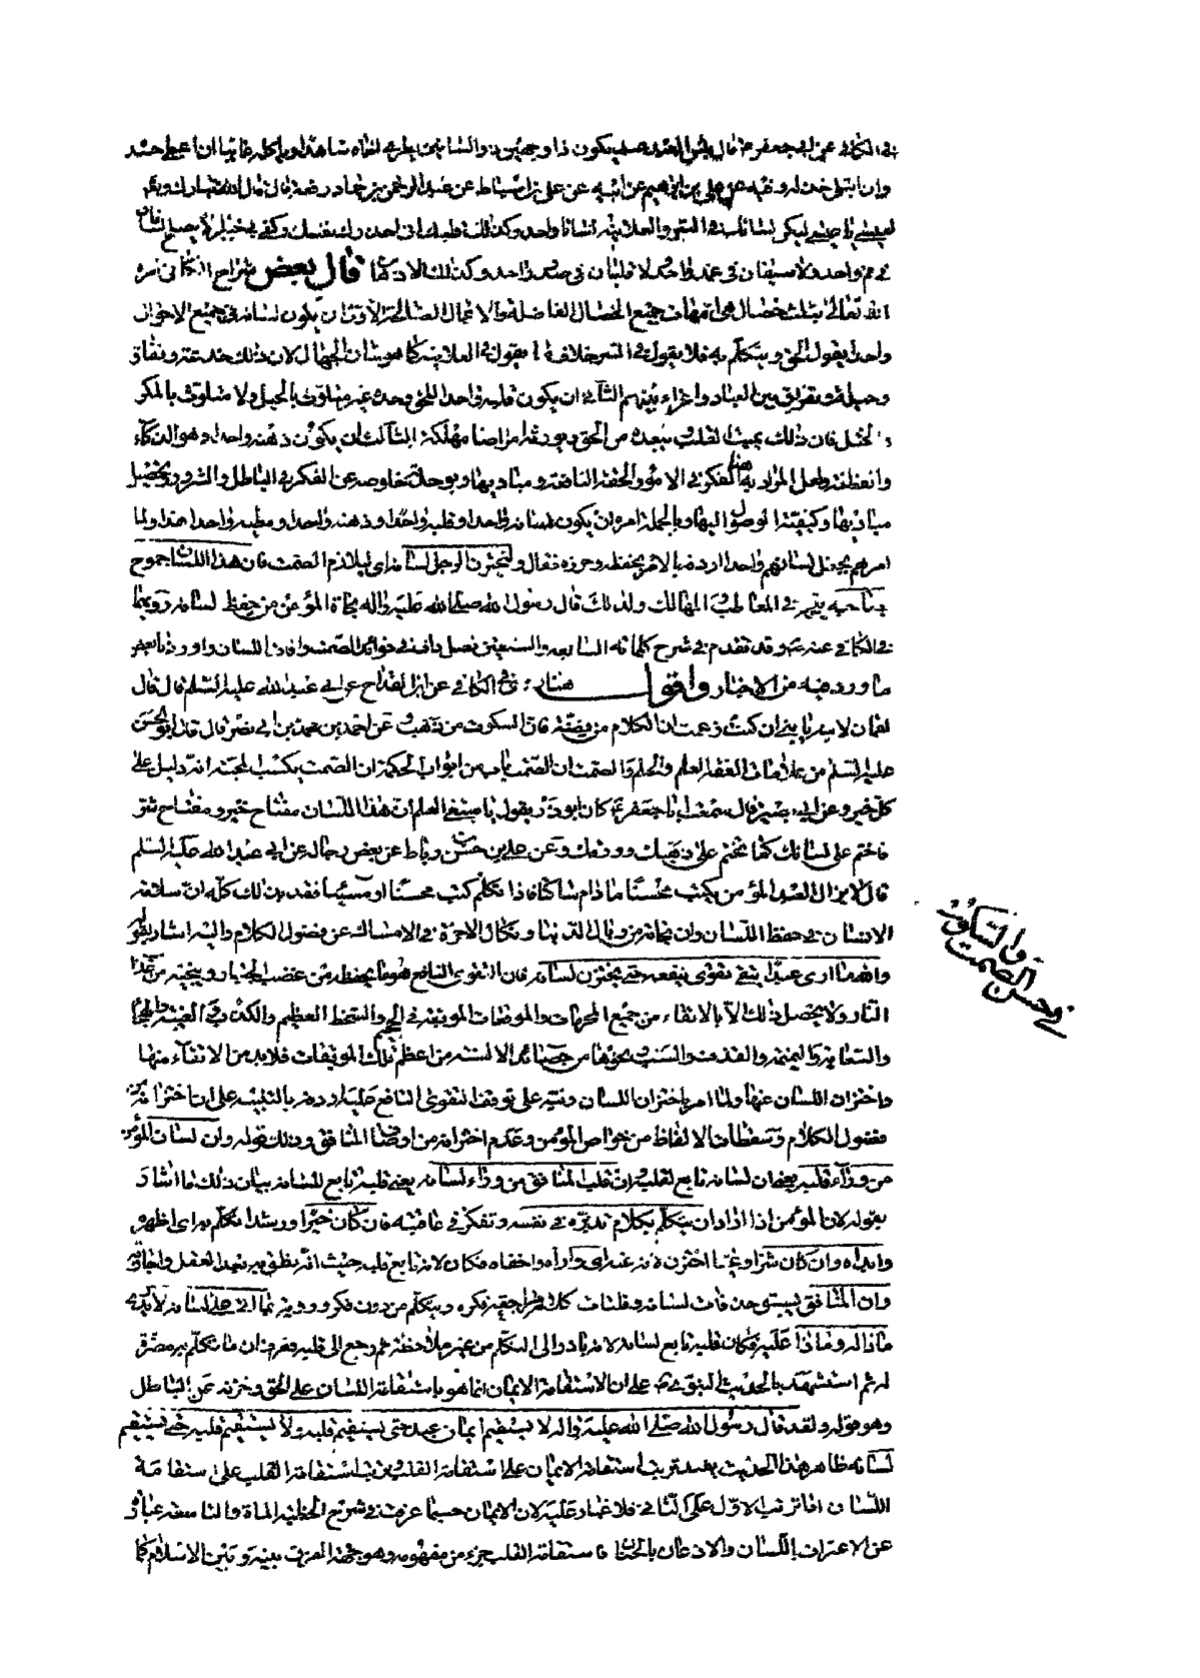 في الكافي عن ابي جعفر ع قال بئس العبد عبد يكون ذا وجهين وذا لسانين يطري اخاه شاهدا وياكله غائبا ان اعطي حسده
وان ابتلي خذله وفيه عن علي بن ابراهيم عن ابيه عن علي بن اسباط عن عبد الرحمن بن حماد رفعه قال قال الله تبارك وتعالى
لعيسى يا عيسى ليكن لسانك في السر والعلانية لسانا واحدا وكذلك قلبك اني احذرك نفسك وكفى بي خبيرا لا يصلح لسانان
في فم واحد ولا سيفان في غمد واحد ولا قلبان في صدر واحد وكذلك الاذهان قال بعض شراح الكافي امره
الله تعالى بثلث خصال هي امهات جميع الخصال الفاضلة والاعمال الصالحة الاول ان يكون لسانه في جميع الاحوال
واحدا يقول الحق ويتكلم به فلا يقول في السر خلاف ما يقول في العلانية كما هو شان الجهال لان ذلك خدعة ونفاق
وحيلة وتفريق بين العباد واغراء بينهم الثاني ان يكون قلبه واحدا للحق وحده غير متلوث بالحيل ولا متلوث بالمكر
والختل فان ذلك يميت القلب ويبعده من الحق ويورثه امراضا مهلكة الثالث ان يكون ذهنه واحدا وهو الذكاء
والفطنة ولعل المراد به هنا الفكر في الامور الحقة النافعة ومباديها وبوحدته خلوصه عن الفكر في الباطل والشرور وتحصيل
مباديها وكيفية الوصول اليها وبالجملة امره ان يكون لسانه واحدا وقلبه واحدا وذهنه واحدا ومطلبه واحدا هذا ولما
امرهم بجعل لسانهم واحدا اردفه بالامر بحفظه وحرزه فقال وليختزن الرجل لسانه اي ليلازم الصمت فان هذا اللسان جموح
بصاحبه يقحمه في المعاطب والمهالك ولذلك قال رسول الله صلى الله عليه واله نجاة المؤمن من حفظ لسانه رويناه
في الكافي عنه ص وقد تقدم في شرح كلماته السابعة والسبعين فصل واف في فوائد الصمت وافات اللسان واوردنا بعض
ما ورد فيه من الاخبار واقول هنا في الكافي عن ابن القداح عن ابي عبد الله عليه السلام قال قال
لقمان لابنه يا بني ان كنت زعمت ان الكلام من فضة فان السكوت من ذهب وعن احمد بن محمد بن ابي نصر قال قال ابو الحسن
عليه السلام من علامات الفقه العلم والحلم والصمت ان الصمت باب من ابواب الحكمة ان الصمت يكسب المحبة انه دليل على
كل خير وعن ابي بصير قال سمعت ابا جعفر ع كان ابو ذر يقول يا مبتغي العلم ان هذا اللسان مفتاح خير ومفتاح شر
فاختم على لسانك كما تختم على ذهبك وورقك وعن علي بن حسن بن رباط عن بعض رجاله عن ابي عبد الله عليه السلم
قال لا يزال العبد المؤمن يكتب محسنا ما دام ساكتا فاذا تكلم كتب محسنا او مسيئا فقد بان لك كله ان سلامة
الانسان في حفظ اللسان وان نجاته من وبال الدنيا ونكال الاخرة في الامساك عن فضول الكلام واليه اشار بقوله
والله ما ارى عبدا يتقي تقوى تنفعه حتى يختزن لسانه فان التقوى النافع هو ما يحفظه من غضب الجبار وينجيه من عذاب
النار ولا يحصل ذلك الا بالاتقاء من جميع المحرمات والموبقات الموقعة في الجحيم والسخط العظيم والكذب والغيبة والهجاء
والسعاية والنميمة والقذف والسب ونحوها من حصائد الالسنة من اعظم تلك الموبقات فلا بد من الاتقاء منها
واختزان اللسان عنها ولما امر باختزان اللسان ونبه على توقف التقوى النافع عليه اردفه بالتنبيه على ان اختزانه من
فضول الكلام وسقطات الالفاظ من خواص المؤمن وعدم اختزانه من اوصاف المنافق وذلك قوله وان لسان المؤمن
من وراء قلبه يعني ان لسانه تابع لقلبه وان قلب المنافق من وراء لسانه يعني قلبه تابع للسانه بيان ذلك ما اشار
بقوله لان المؤمن اذا اراد ان يتكلم بكلام تدبره في نفسه وتفكر في عاقبته فان كان خيرا ورشدا تكلم به اي اظهره
وابداه وان كان شرا وغيا اختزن لسانه عنه اي واراه واخفاه فكان لسانه تابع قلبه حيث انه نطق به بعد العقل واجازته
وان المنافق يسبق حذفات لسانه وفلتات كلامه مراجعة فكره ويتكلم من دون فكر وروية بما اتى على لسانه لا يدري
ماذا له وماذا عليه فكان قلبه تابع لسانه لانه بادر الى التكلم من غير ملاحظة ثم رجع الى قلبه فعرف ان ما تكلم به مضرة
له ثم استشهد بالحديث النبوي ص على ان الاستقامة الايمان انما هو باستقامة اللسان على الحق وخزنه عن الباطل
وهو قوله ولقد قال رسول الله صلى الله عليه واله لا يستقيم ايمان عبد حتى يستقيم قلبه ولا يستقيم قلبه حتى يستقيم
لسانه ظاهر هذا الحديث يفيد ترتب استقامة الايمان على استقامة القلب وترتب استقامة القلب على استقامة
اللسان اما ترتب الاول على الثاني فلا غبار عليه لان الايمان حسبما عرفت في شرح الخطبة المائة والتاسعة عبارة
عن الاعتراف باللسان والاذعان بالجنان فاستقامة القلب جزء من مفهومه وهو جهة الفرق بينه وبين الاسلام كما
في حسن الصمت والسكوت